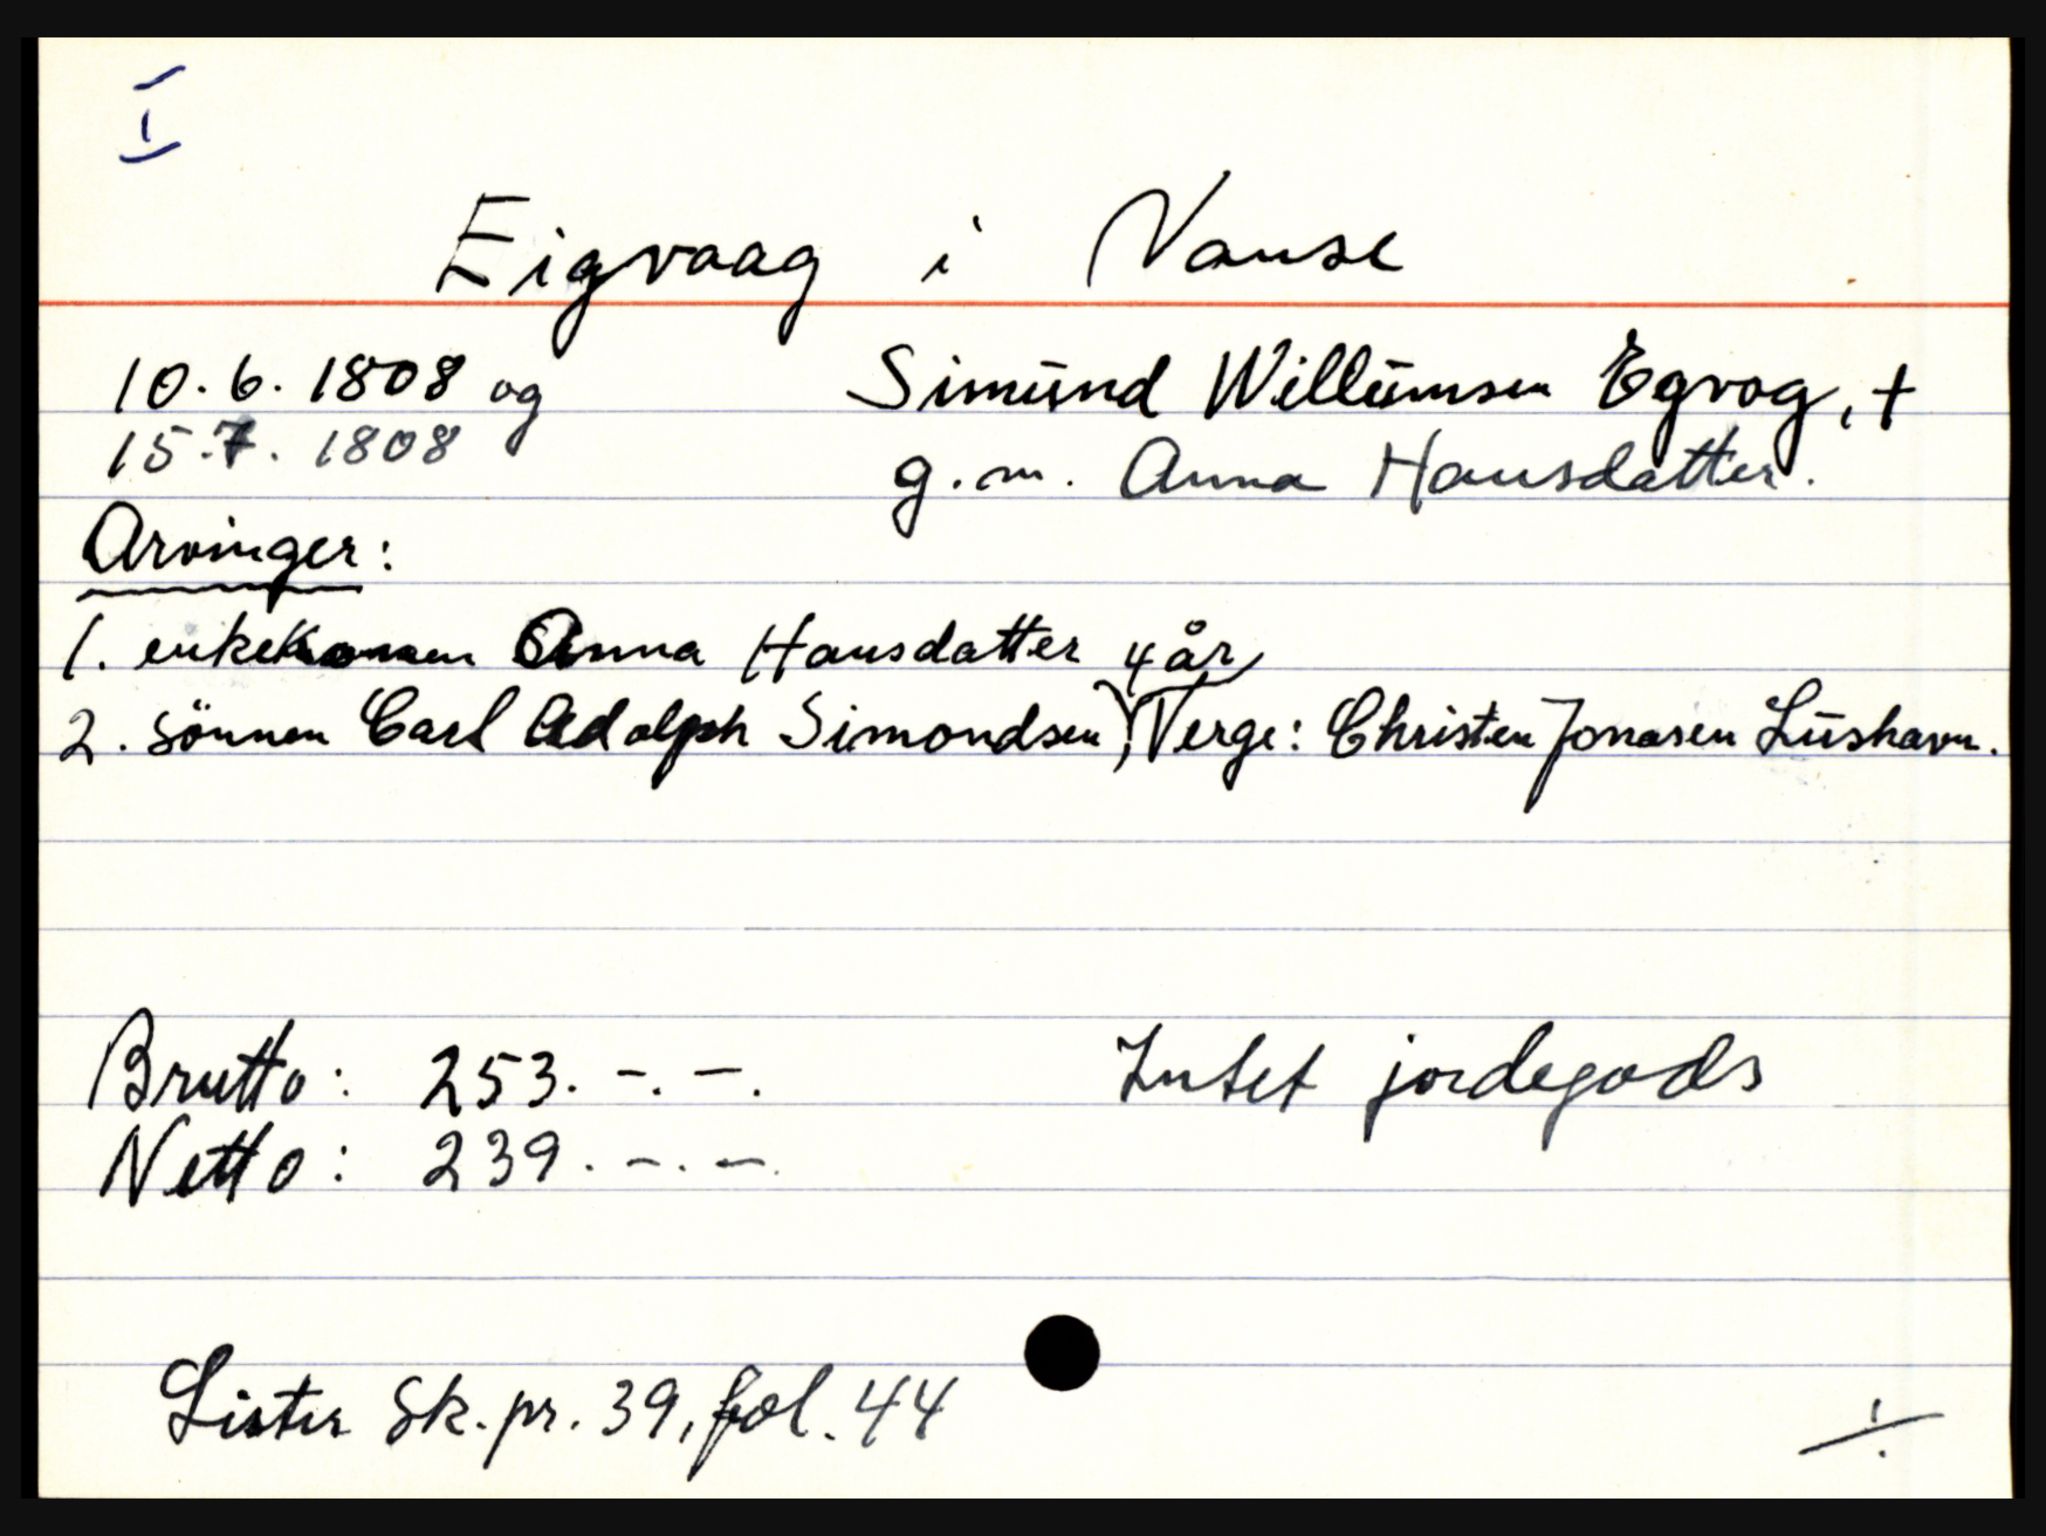 I
Eigvaag i Vanse
10.6.1808 og Simund Willumsen Egvog, +
15.7.1808 g.m. Anna Hansdatter.
Arvinger:
1. enkekonen Anna Hansdatter
4 år
2. sönnen Carl Adolph Simondsen, Verge: Christen Jonasen Lushavn.
Brutto: 253. -. -. Intet jordegods
Netto: 239. -. -.
Lister Sk.pr. 39, fol. 44